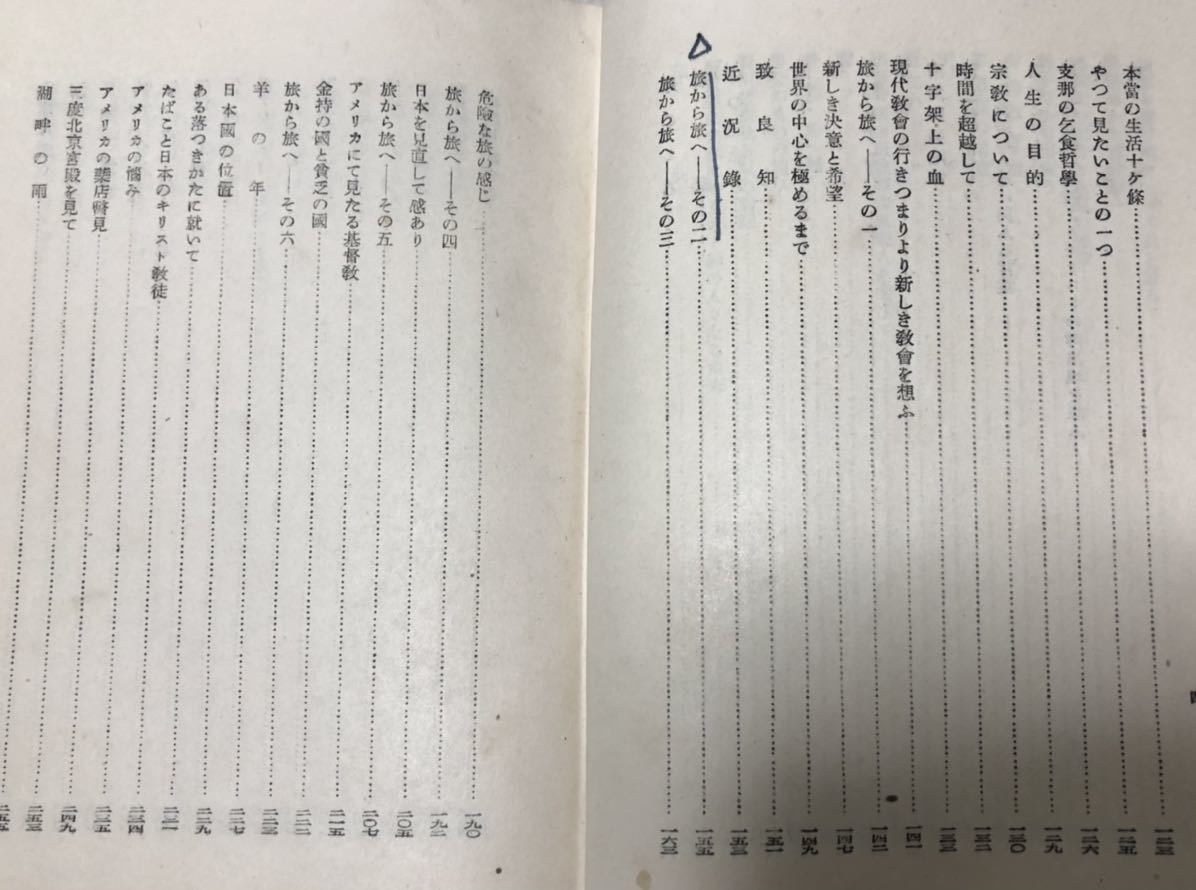 本當の生活十ケ條……一二三
やつて見たいことの一つ……一二五
支那の乞食哲學……一二六
人生の目的……一二九
宗教について……一三〇
時間を超越して……一三二
十字架上の血……一三三
現代教會の行きつまりより新しき教會を想ふ……一四一
旅から旅へ――その一……一四二
新しき決意と希望……一四七
世界の中心を極めるまで……一四九
致良知……一五一
近況錄……一五三
旅から旅へ――その二……一五五
旅から旅へ――その三……一六三
危險な旅の感じ……一九〇
旅から旅へ――その四……一九二
日本を見直して感あり……二〇五
旅から旅へ――その五……二〇七
アメリカにて見たる基督教……二一五
金持の國と貧乏の國……二二二
旅から旅へ――その六……二二三
羊の年……二二七
日本國の位置……二二九
ある落つきかたに就いて……二三一
たばこと日本のキリスト教徒……二三四
アメリカの惱み……二三五
アメリカの藥店瞥見……二四九
三度北京宮殿を見て……二五三
湖畔の雨……二五五